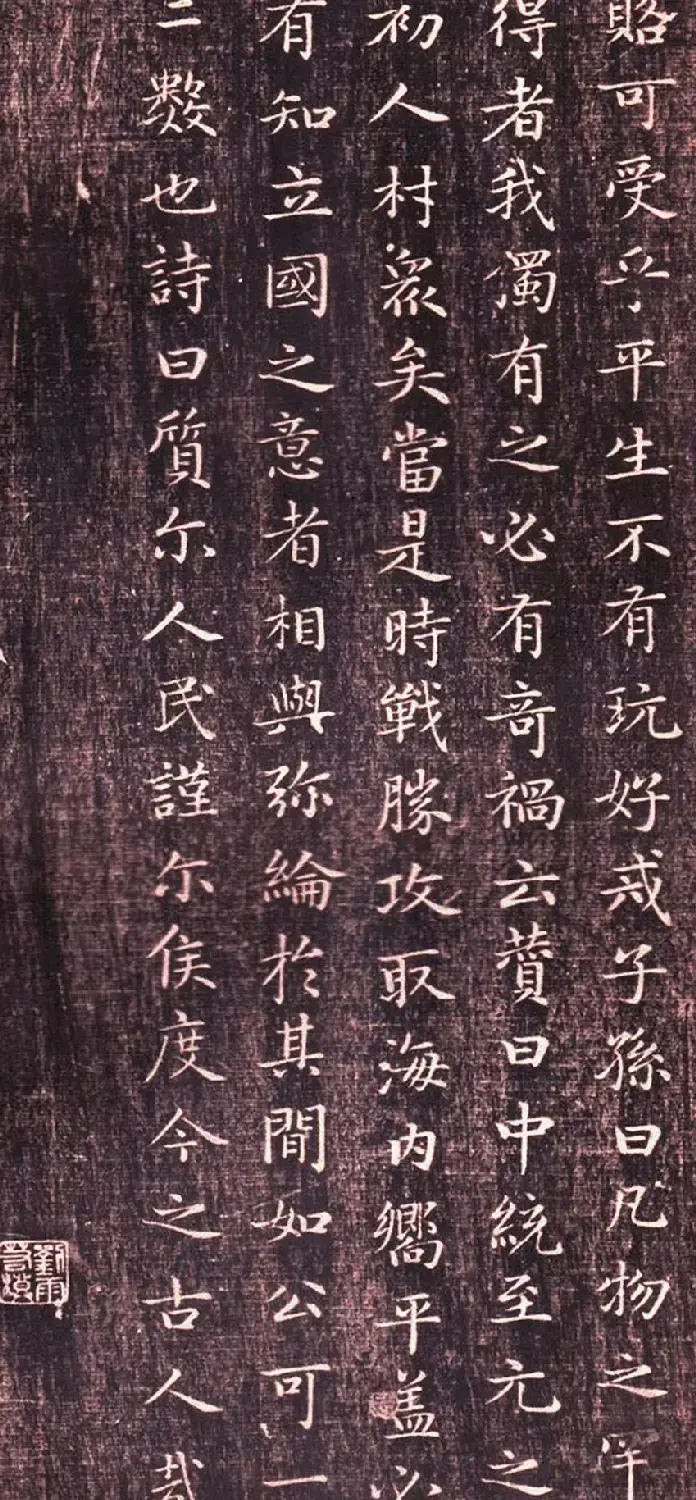 賂可受乎平生不有玩好戒子孫曰凡物之罕
得者我獨有之必有奇禍云蕢曰中統至元之
初人材衆矣當是時戰勝攻取海内嚮平盖必
有知立國之意者相與弥綸於其間如公可一
二數也詩曰質尓人民謹尓侯度今之古人哉